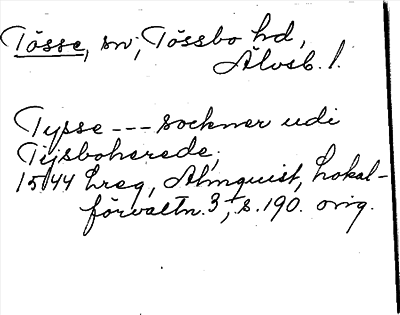 Tösse, sn; Tössbo hd,
Älvsb. l.
Tysse --- sockner udi
Tijsboherede;
1544 Lreg, Almquist, Lokal-
förvaltn. 3, s. 190. orig.